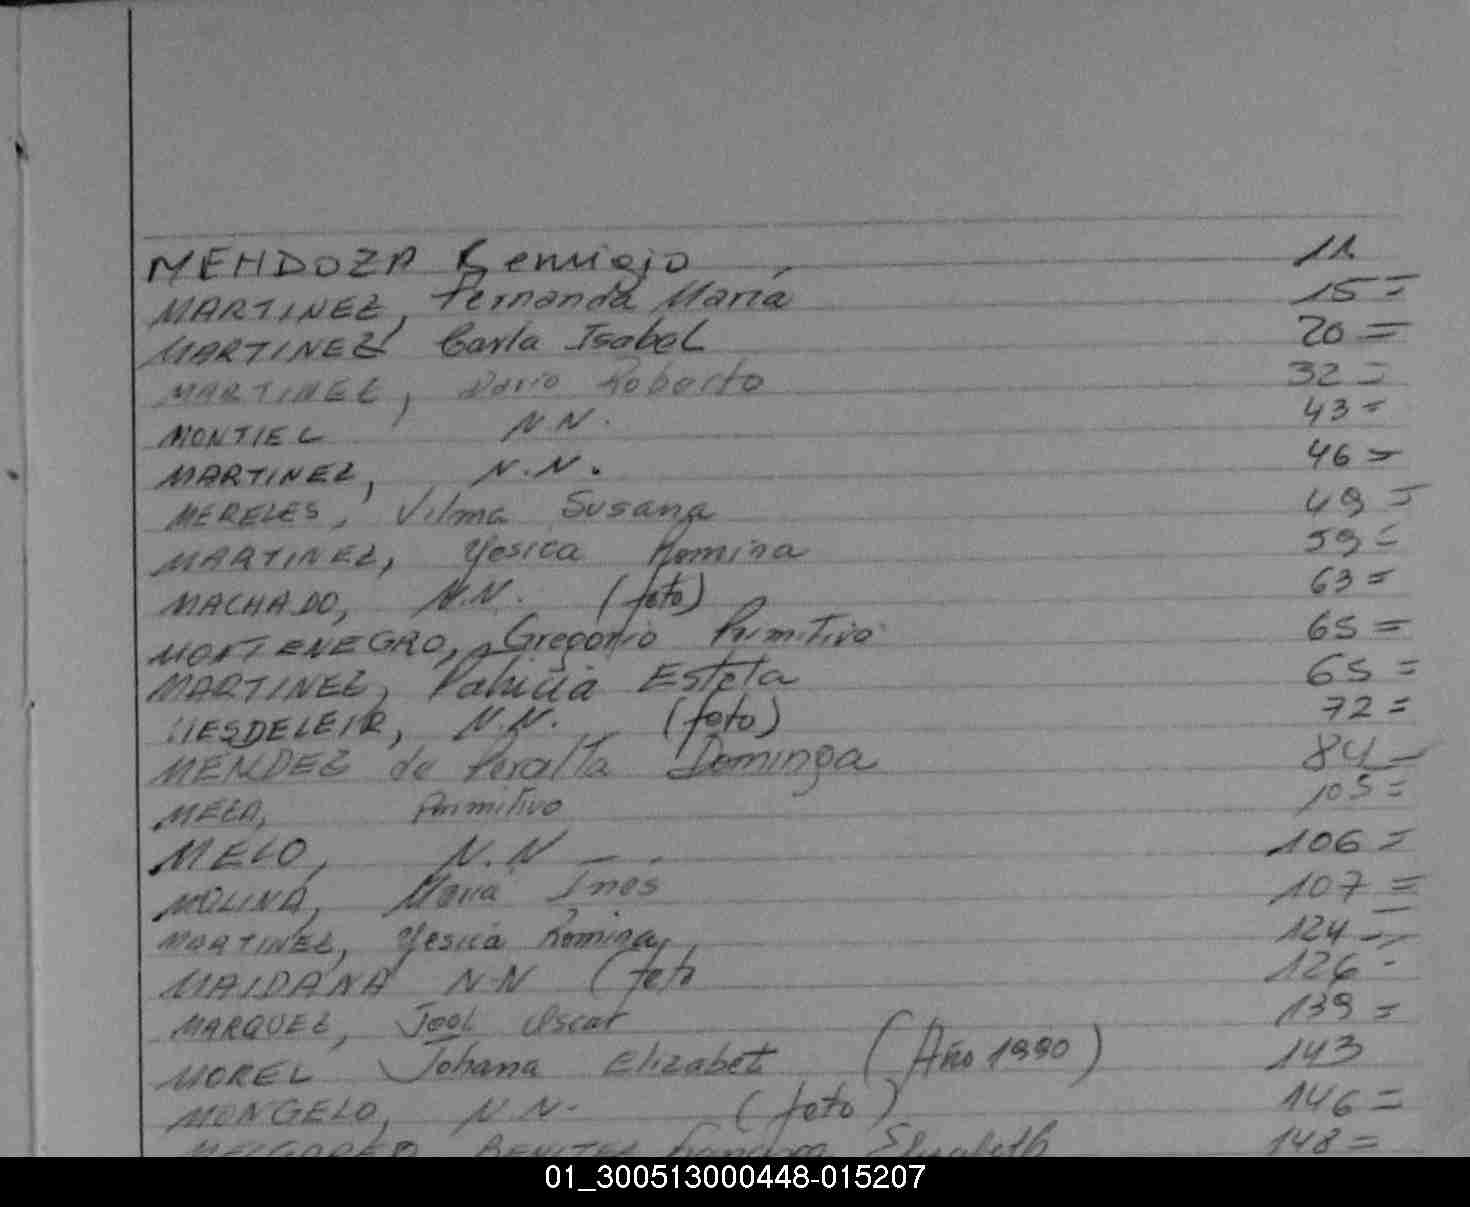 MENDOZA Remigio 11
MARTINEZ, Fernanda María 15=
MARTINEZ Carla Isabel 20=
MARTINEZ, Dario Roberto 32=
MONTIEL N.N. 43=
MARTINEZ, N.N. 46=
MERELES, Vilma Susana 49=
MARTINEZ, Yesica Romina 59=
MACHADO, N.N. (feto) 63=
MONTENEGRO, Gregorio Primitivo 65=
MARTINEZ, Patricia Estela 65=
N.N. (feto) 72=
MENDEZ de Peralta Dominga 84=
MEZA, Primitivo 105=
MELO, N.N 106=
MOLINA, María Ines 107=
MARTINEZ, Yesica Romina, 124=
MAIDANA N.N (feto 126-
MARQUEZ, Joel Oscar 139=
MOREL Johana Elizabet (Año 1990) 143
MONGELO, N.N. (feto) 146=
BENITEZ Elizabeth 148=
01_300513000448-015207